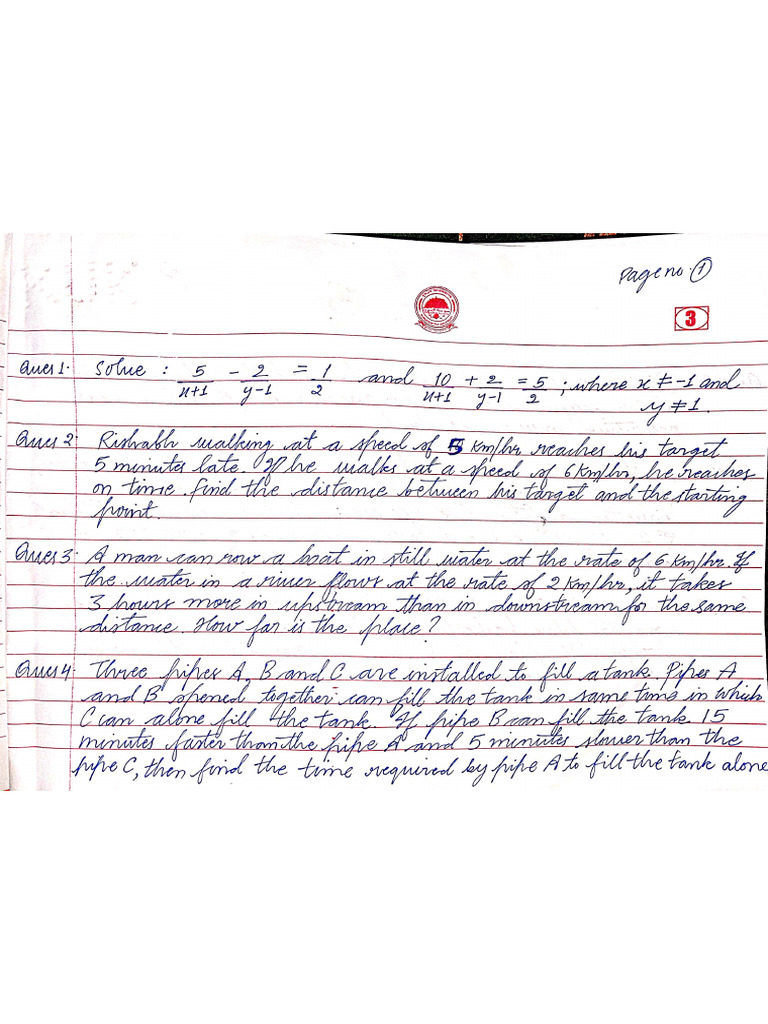 Page no. ①
3
Ques 1. Solve : 5/(x+1) - 2/(y-1) = 1/2 and 10/(x+1) + 2/(y-1) = 5/2 ; where x ≠ -1 and
y ≠ 1.
Ques 2. Rishabh walking at a speed of 5 km/hr reaches his target
5 minutes late. If he walks at a speed of 6 km/hr, he reaches
on time. find the distance between his target and the starting
point.
Ques 3. A man can row a boat in still water at the rate of 6 km/hr. If
the water in a river flows at the rate of 2 km/hr, it takes
3 hours more in upstream than in downstream for the same
distance. How far is the place?
Ques 4. Three pipes A, B and C are installed to fill a tank. Pipes A
and B opened together can fill the tank in same time in which
C can alone fill the tank. If pipe B can fill the tank 15
minutes faster than the pipe A and 5 minutes slower than the
pipe C, then find the time required by pipe A to fill the tank alone